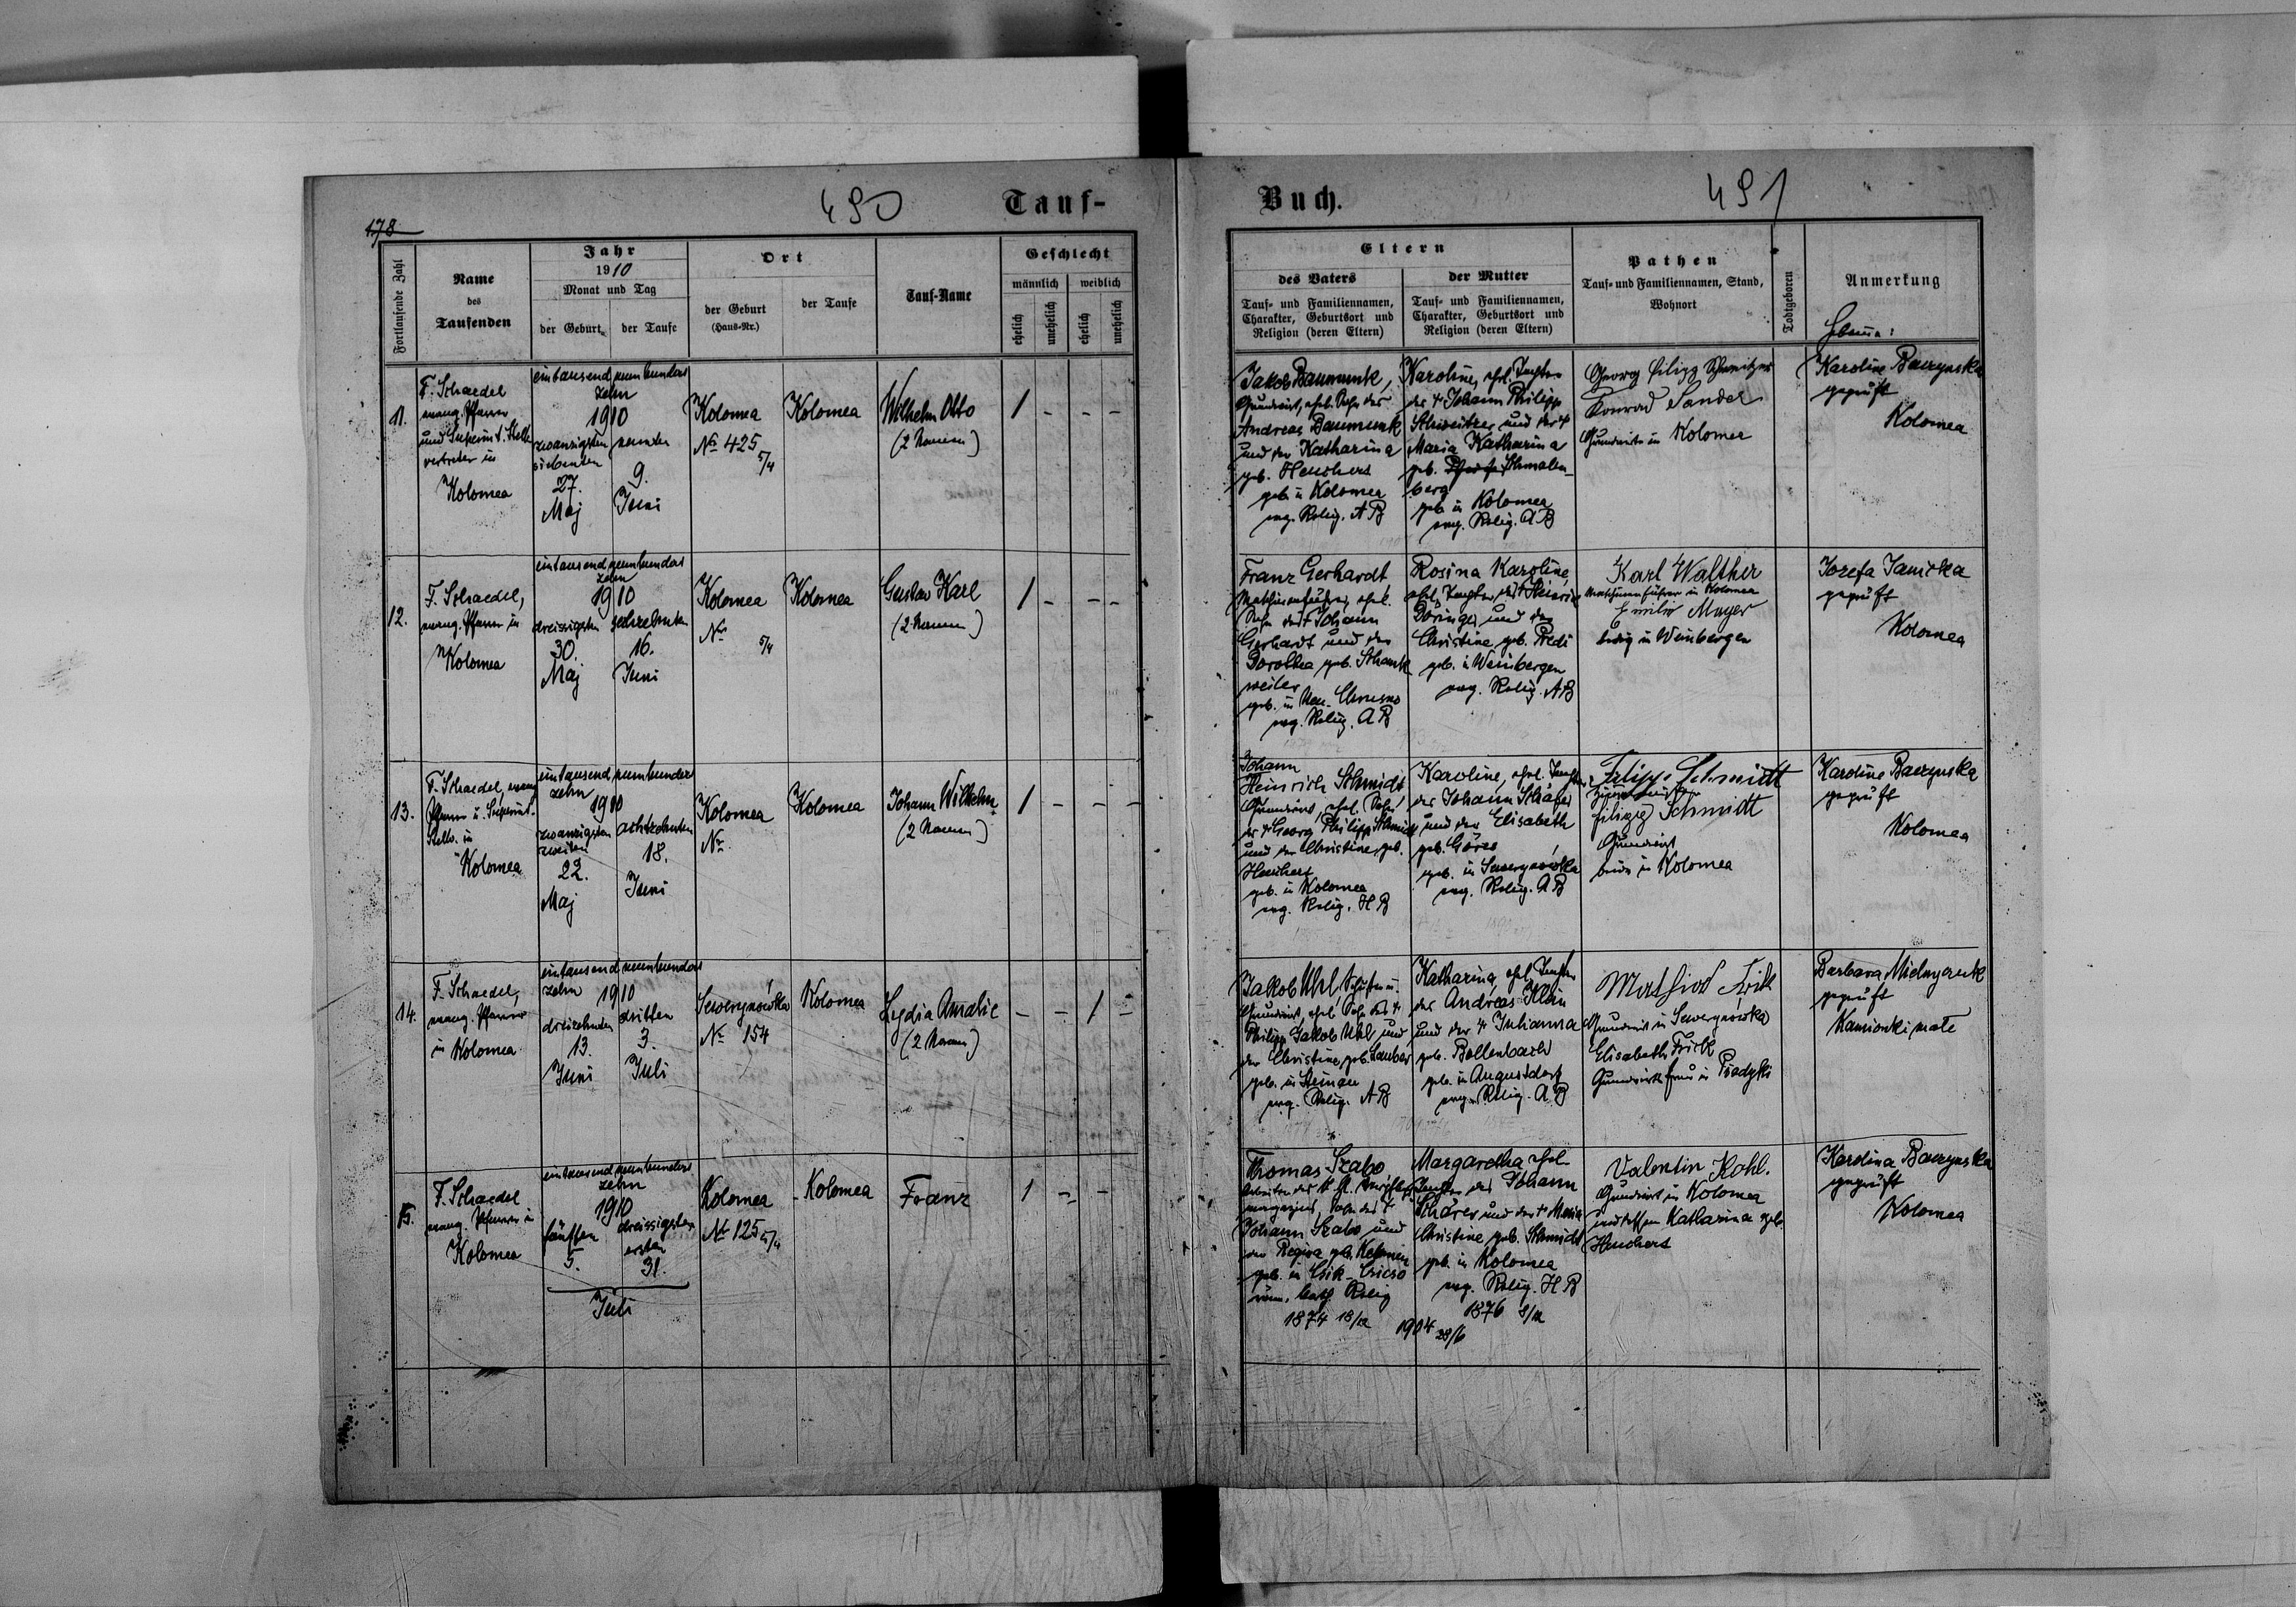 490
Tauf-
178
Fortlaufende Zahl
Name
des
Taufenden
Jahr
1910
Monat und Tag
der Geburt
der Taufe
Ort
der Geburt
(Haus-Nr.)
der Taufe
Tauf-Name
Geschlecht
männlich
weiblich
ehelich
unehelich
ehelich
unehelich
11.
F. Schaedel
evang. Pfarrer
und Superint. Stell
vertreter in
Kolomea
eintausend neunhundert
zehn
1910
zwanzigsten
siebenten
27.
Maj
neunten
9.
Juni
Kolomea
No 425
5/4
Kolomea
Wilhelm Otto
(2 Namen)
1 - - -
12.
F. Schaedel,
evang. Pfarrer in
Kolomea
eintausend neunhundert
zehn
1910
dreissigsten
30.
Maj
sechzehnten
16.
Juni
Kolomea
No
5/4
Kolomea
Gustav Karl
(2 Namen)
1 - - -
13.
F. Schaedel, evang
Pfarrer u. Superint.
Stellv. in
Kolomea
eintausend neunhundert
zehn
1910
zwanzigsten
zweiten
22.
Maj
achtzehnten
18.
Juni
Kolomea
No
Kolomea
Johann Wilhelm
(2 Namen)
1 - - -
14.
F. Schaedel,
evang. Pfarrer
in Kolomea
eintausend neunhundert
zehn 1910
dreizehnten
13.
Juni
dritten
3.
Juli
Sewerynówka
No 154
Kolomea
Lydia Amalie
(2 Namen)
- - 1 -
15.
F. Schaedel
evang. Pfarrer in
Kolomea
eintausend neunhundert
zehn
1910
fünften
5.
dreissigsten
ersten
31.
Juli
Kolomea
No 125 5/4
Kolomea
Franz
1 - -
Buch.
491
Eltern
des Vaters
Tauf- und Familiennamen,
Charakter, Geburtsort und
Religion (deren Eltern)
der Mutter
Tauf- und Familiennamen,
Charakter, Geburtsort und
Religion (deren Eltern)
Pathen
Tauf- und Familiennamen, Stand,
Wohnort
Todtgeboren
Anmerkung
Jakob Baumunk,
Grundwirt, ehel. Sohn des
Andreas Baumunk
und der Katharina
geb. Heuchert
geb. in Kolomea
evg. Relig. A B
Karoline, ehel. Tochter
des † Johann Philipp
Schweitzer und der †
Maria Katharina
geb. Schmalen-
berg
geb. in Kolomea
evg. Relig. A B
Georg Filipp Schweitzer
Konrad Sander
Grundwirte in Kolomea
Karoline Baczynska
geprüft
Kolomea
Franz Gerhardt
Maschinenführer, ehel.
Sohn des † Johann
Gerhardt und der
Dorothea geb. Schank
weiler
geb. in Neu-Chrusno
evg. Relig. A B
Rosina Karoline,
ehel. Tochter des † Heinrich
Döringer und der
Christine geb. Predi
geb. in Weinbergen
evg. Relig. A B
Karl Walther
Maschinenführer in Kolomea
Emilie Mayer
ledig in Weinbergen
Jozefa Janicka
geprüft
Kolomea
Johann
Heinrich Schmidt
Grundwirt, ehel. Sohn
des † Georg Philipp Schmidt
und der Christine, geb.
Heuchert
geb. in Kolomea
evg. Relig. H B
Karoline, ehel. Tochter
des Johann Schäfer
und der Elisabeth
geb. Göres
geb. in Sewerynówka
evg. Relig. A B
Filipp Schmidt
filipp Schmidt
Grundwirt
beide in Kolomea
Karoline Baczynska
geprüft
Kolomea
Jakob Uhl,
Grundwirt, ehel. Sohn des †
Philipp Jakob Uhl und
der Christine, geb. Lauber
geb. in Steinau
evg. Relig. A B
Katharina, ehel. Tochter
des Andreas Klein
und der † Julianna
geb. Bollenbach
geb. in Augustdorf
evg. Relig. A B
Mathias Frik
Grundwirt in Sewerynówka
Elisabeth Frick
Grundwirtsfrau in Piadyki
Barbara Mielnyczuk
geprüft
Kamionki małe
Thomas Szabo
magazins, Sohn des †
Johann Szabo und
der Regina geb.
geb. in Csik-Csicso
röm. kath. Relig
1874 18/12
Margaretha ehel.
Tochter des Johann
Schärer und der † Maria
Christine geb. Schmidt
geb. in Kolomea
evg. Relig. H B
1876 8/12
1904 28/6
Valentin Kohl.
Grundwirt in Kolomea
und dessen Katharina geb.
Heuchert
Karolina Baczynska
geprüft
Kolomea